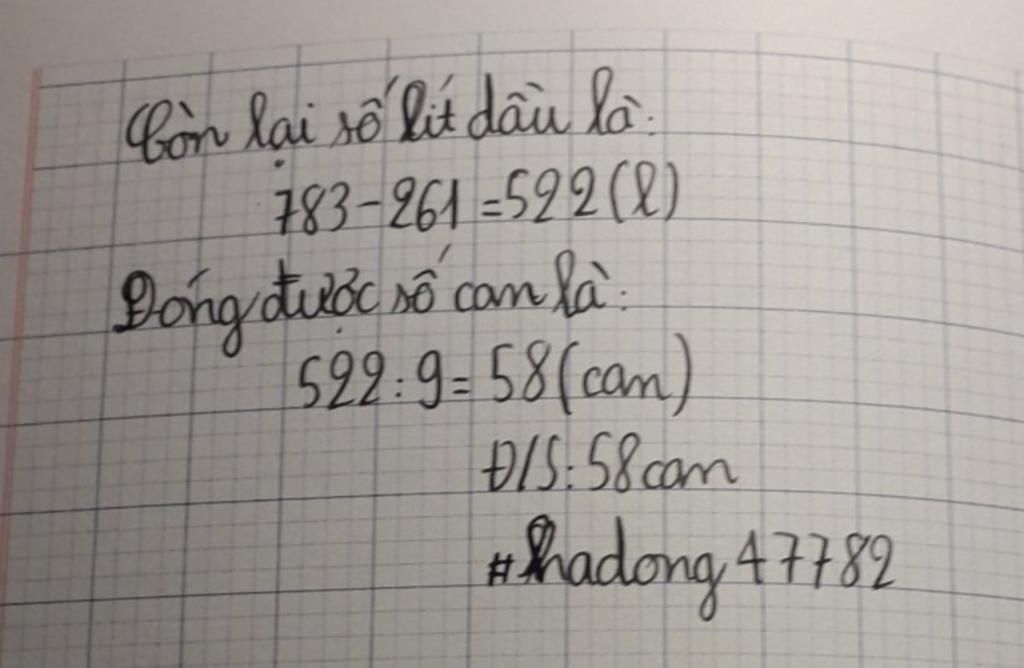 Còn lại số lít dầu là:
783-261=522(l)
Đóng được số can là:
522:9=58(can)
Đ/S:58can
#hadong47782